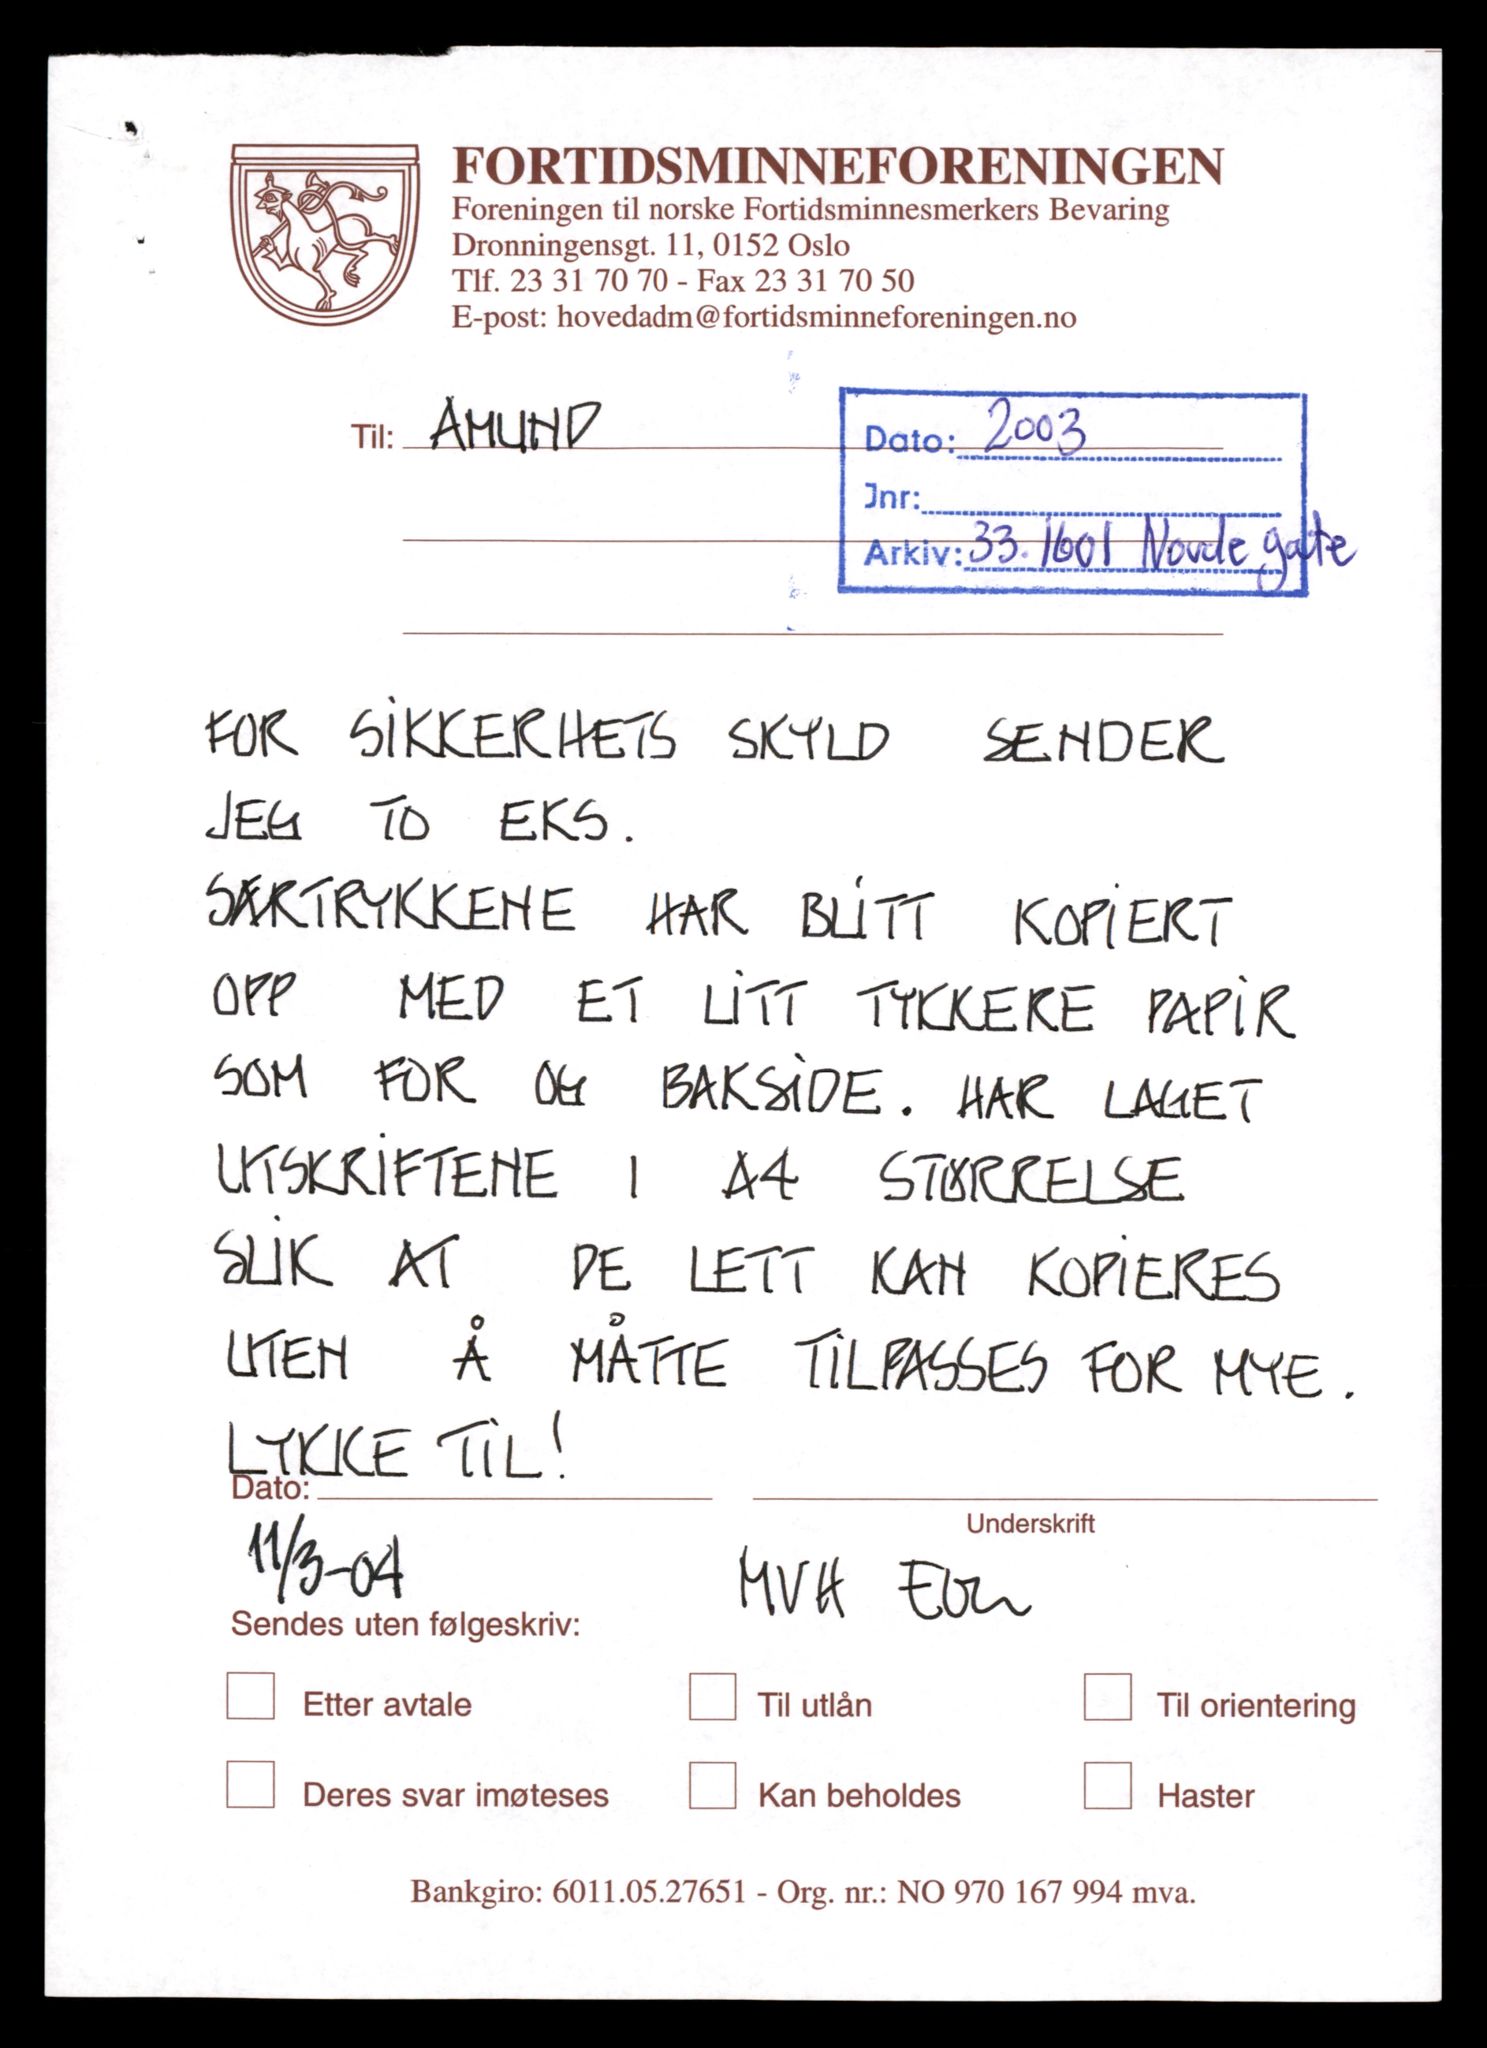 FORTIDSMINNEFORENINGEN
Foreningen til norske Fortidsminnesmerkers Bevaring
Dronningensgt. 11, 0152 Oslo
Tlf. 23 31 70 70 - Fax 23 31 70 50
E-post: hovedadm@fortidsminneforeningen.no
Til: AMUND
Dato: 2003
Jnr:
Arkiv: 33.1601 Nordre gate
FOR SIKKERHETS SKYLD SENDER
JEG TO EKS.
SÆRTRYKKENE HAR BLITT KOPIERT
OPP MED ET LITT TYKKERE PAPIR
SOM FOR OG BAKSIDE. HAR LAGET
UTSKRIFTENE I A4 STØRRELSE
SLIK AT DE LETT KAN KOPIERES
UTEN Å MÅTTE TILPASSES FOR MYE.
LYKKE TIL!
Dato:
Underskrift
11/3-04 MVH
Sendes uten følgeskriv:
Etter avtale Til utlån Til orientering
Deres svar imøteses Kan beholdes Haster
Bankgiro: 6011.05.27651 - Org. nr.: NO 970 167 994 mva.